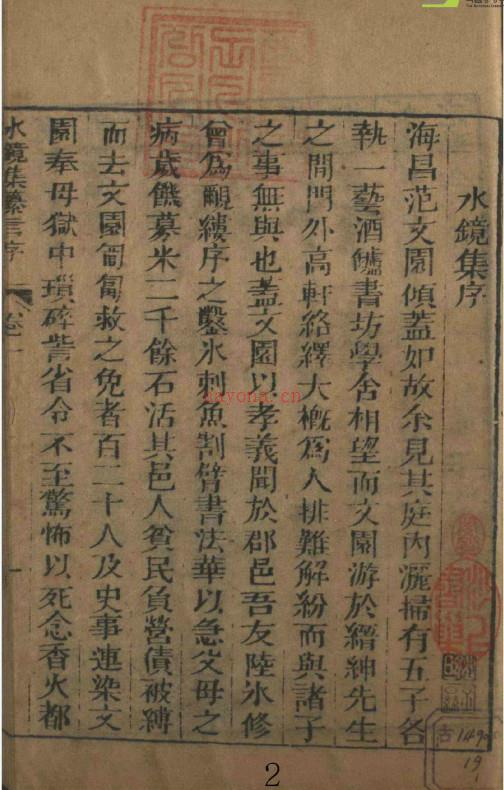 水鏡集序
海昌范文園傾蓋如故余見其庭內灑掃有五子各
執一藝酒罏書坊學舍相望而文園游於縉紳先生
之間門外高軒絡繹大槪爲人排難解紛而與諸子
之事無與也蓋文園以孝義聞於郡邑吾友陸氷修
曾爲覼縷序之鑿氷刺魚割臂書法華以急父母之
病歲饑募米二千餘石活其邑人貧民負營債被縛
而去文園匍匐救之免者百二十人及史事連染文
園奉母獄中瑣碎皆省令不至驚怖以死念香火都
水鏡集 序
卷一
一
dayona.cn
古1490
19
2